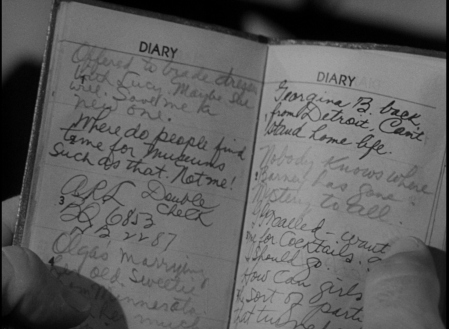 DIARY
Offered to trade dresses
with Lucy. Maybe she
will. Save me a
new one.
Where do people find
time for museums
such as that. Not me!
Double
check
3
6853
2287
4
Olgas marrying
old Sweetie
Minnesota
much
DIARY
Georgina B. back
from Detroit, Can't
stand home life.
Nobody knows where
Barney has gone.
Mystery to all.
called - want
me for Cocktails.
Should go.
How can girls
sort of